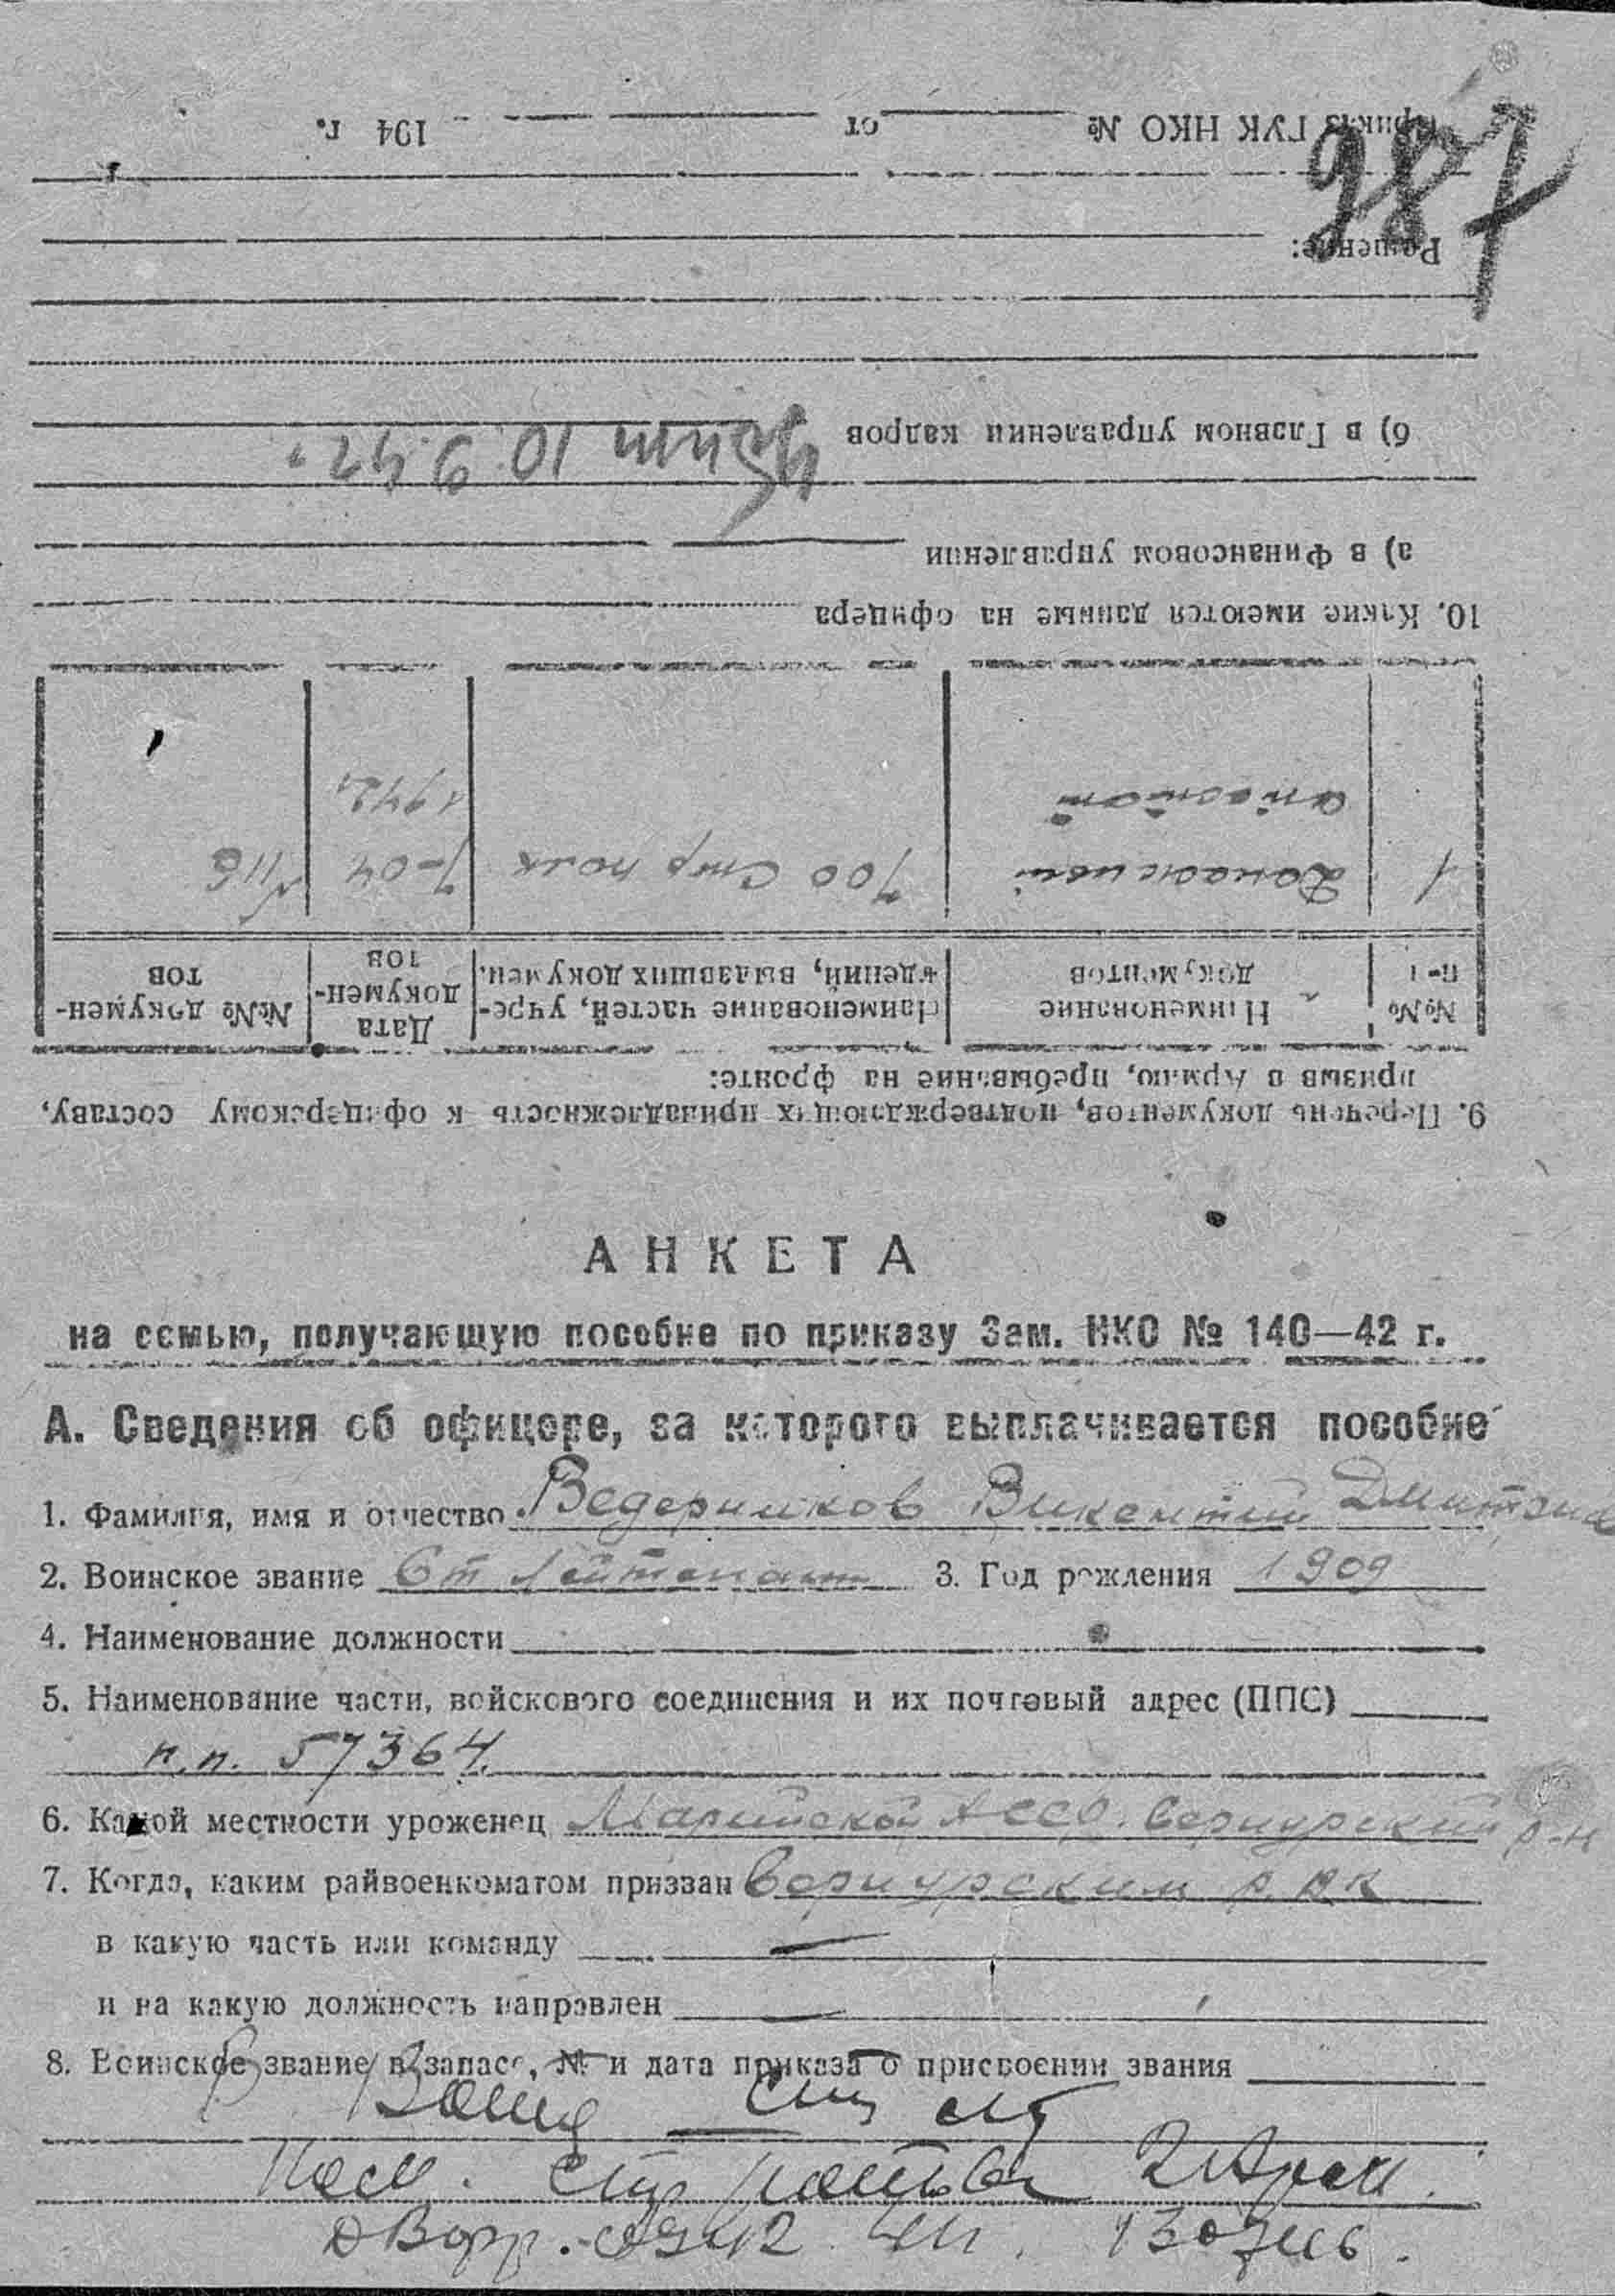 987
Приказ ГУК НКО № от 194 г.
Решение:
б) в Главном управлении кадров
10. 9. 42
а) в Финансовом управлении
10. Какие имеются данные на офицера
№№ п-п Наименование документов Наименование частей, учреждений, выдавших докумен. Дата документов №№ документов
1 700 Стр полк 7-04 1942 № 116
9. Перечень документов, подтверждающих принадлежность к офицерскому составу,
призыв в Армию, пребывание на фронте:
АНКЕТА
на семью, получающую пособие по приказу Зам. НКО № 140—42 г.
А. Сведения об офицере, за которого выплачивается пособие
1. Фамилия, имя и отчество Ведерников Викентий
2. Воинское звание Ст Лейтенант 3. Год рождения 1909
4. Наименование должности
5. Наименование части, войскового соединения и их почтовый адрес (ППС)
п.п. 57364.
6. Какой местности уроженец Марийской АССР. Сернурский р-н
7. Когда, каким райвоенкоматом призван Сернурским РВК
в какую часть или команду —
и на какую должность направлен —
8. Воинское звание в запасе, № и дата приказа о присвоении звания